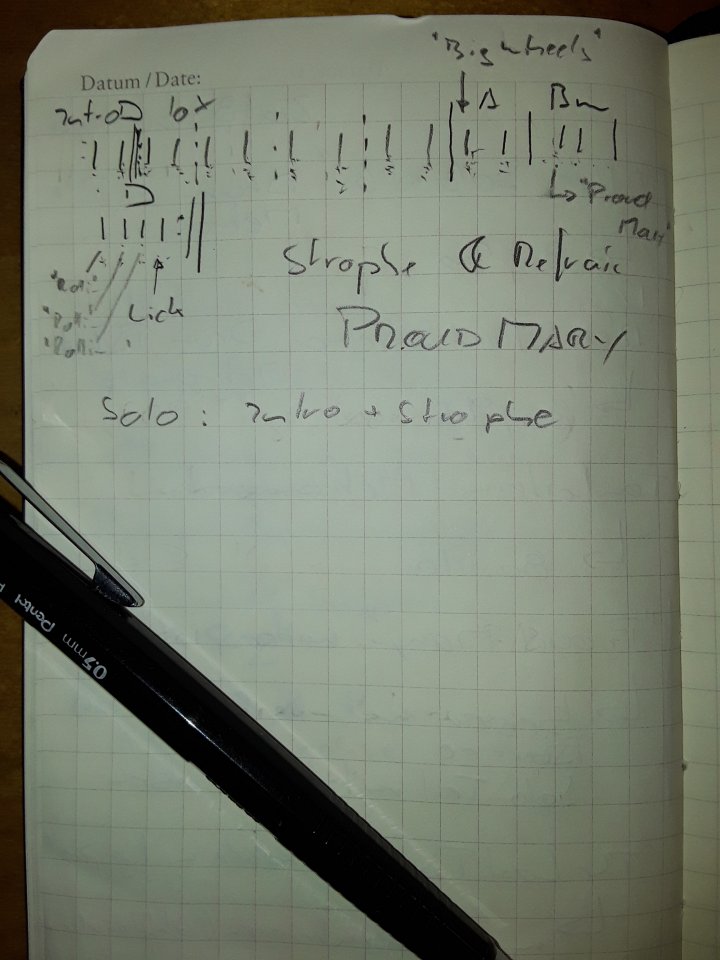 "Big wheels"
Datum / Date:
Intro D 10x A Bm
D
"Proud
Mary"
Strophe & Refrain
"Rolli
Lick
"Rolli
"Rolli
PROUD MARY
Solo : Intro + Strophe
0.5mm Pentel